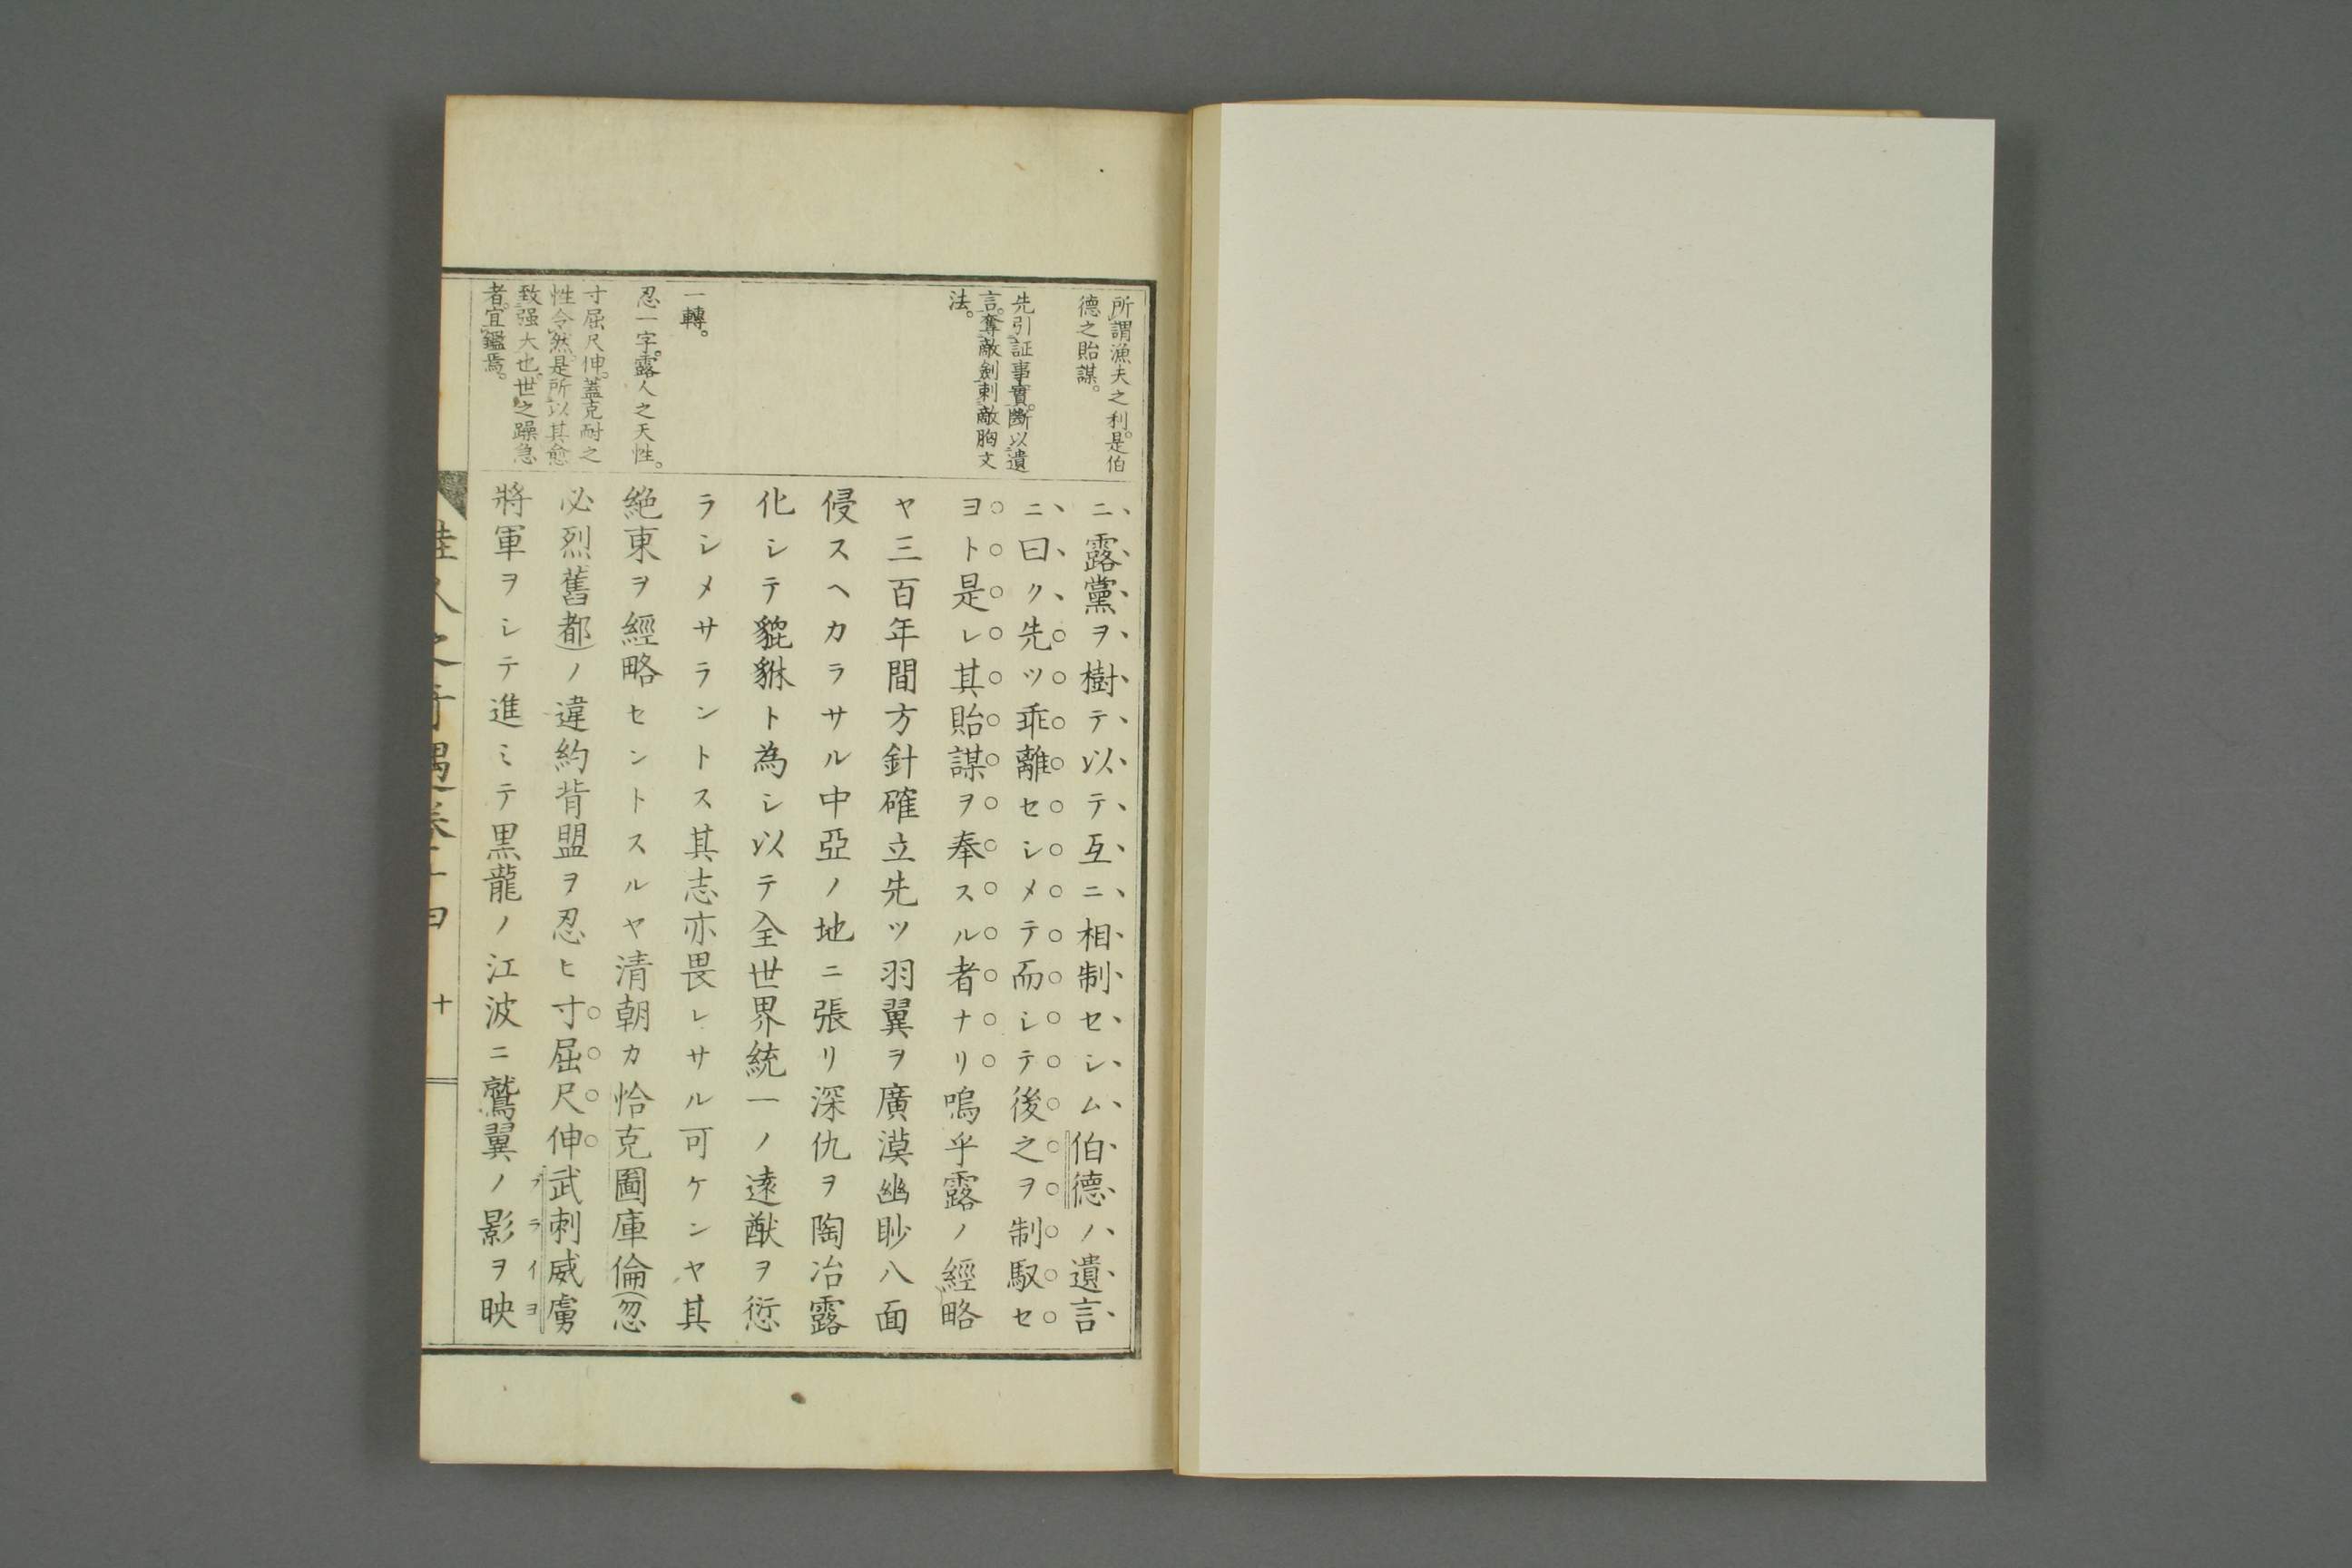 所謂漁夫之利。是伯
德之貽謀。
先引証事實。斷以遺
言。奪敵劍刺敵胸文
法。
一轉。
忍一字。露人之天性。
寸屈尺伸。蓋克耐之
性令然。是所以其愈
致强大也。世之躁急
者。宜鑑焉。
ニ露黨ヲ樹テ以テ互ニ相制セシム伯德ノ遺言
ニ曰ク先ツ乖離セシメテ而シテ後之ヲ制馭セ
ヨト是レ其貽謀ヲ奉スル者ナリ嗚乎露ノ經略
ヤ三百年間方針確立先ツ羽翼ヲ廣漠幽眇八面
侵スヘカラサル中亞ノ地ニ張リ深仇ヲ陶冶露
化シテ貔貅ト為シ以テ全世界統一ノ遠猷ヲ愆
ラシメサラントス其志亦畏レサル可ケンヤ其
絶東ヲ經略セントスルヤ清朝カ恰克圖庫倫(忽
必烈舊都)ノ違約背盟ヲ忍ヒ寸屈尺伸武刺威虜
ブライヨ
將軍ヲシテ進ミテ黒龍ノ江波ニ鷲翼ノ影ヲ映
佳人之奇遇卷十四 十